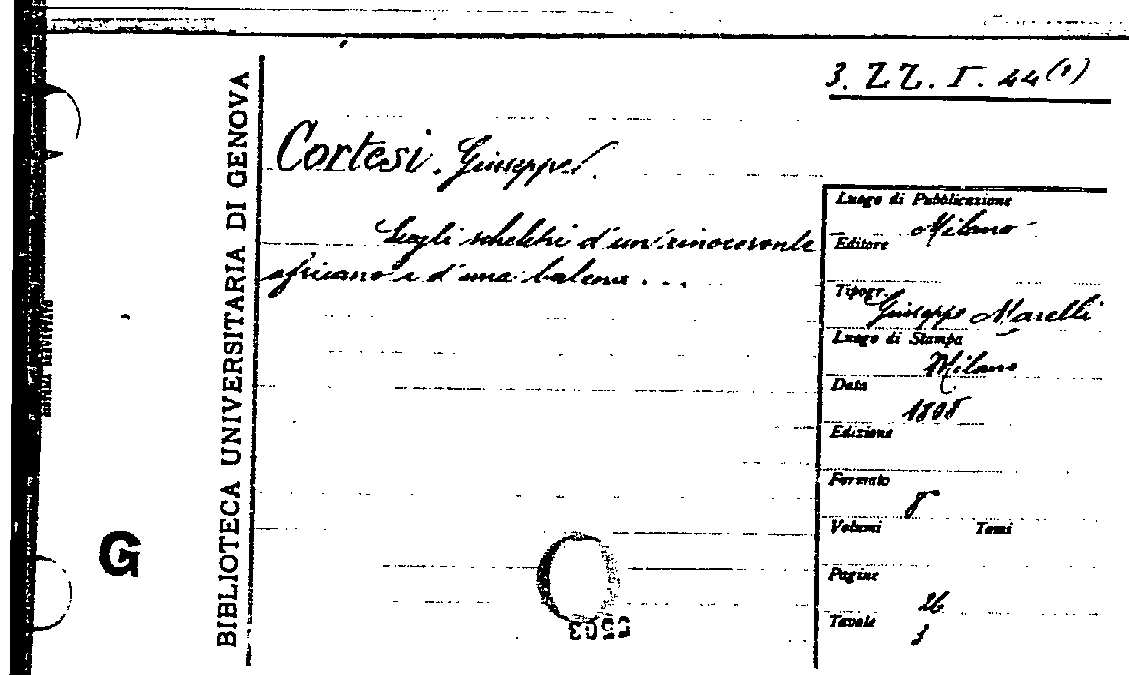 3. ZZ. I. 44(1)
BIBLIOTECA UNIVERSITARIA DI GENOVA
Cortesi. Giuseppe.
Sugli scheletri d'un rinoceronte
africano e d'una balena...
Luogo di Pubblicazione
Milano
Editore
Tipogr.
Giuseppe Marelli
Luogo di Stampa
Milano
Data
1808
Edizione
Formato
8
Volumi Tomi
Pagine
26
Tavole
3
G